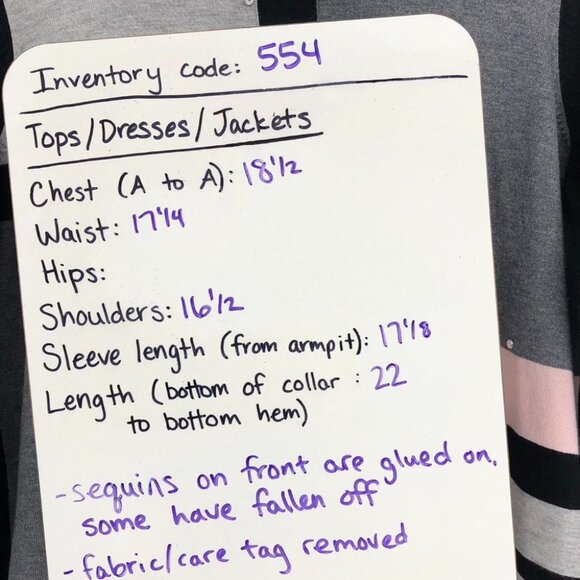 Inventory code: 554
Tops/Dresses/Jackets
Chest (A to A): 18 1/2
Waist: 17 1/4
Hips:
Shoulders: 16 1/2
Sleeve length (from armpit): 17 1/8
Length (bottom of collar : 22
to bottom hem)
- sequins on front are glued on,
some have fallen off
- fabric/care tag removed